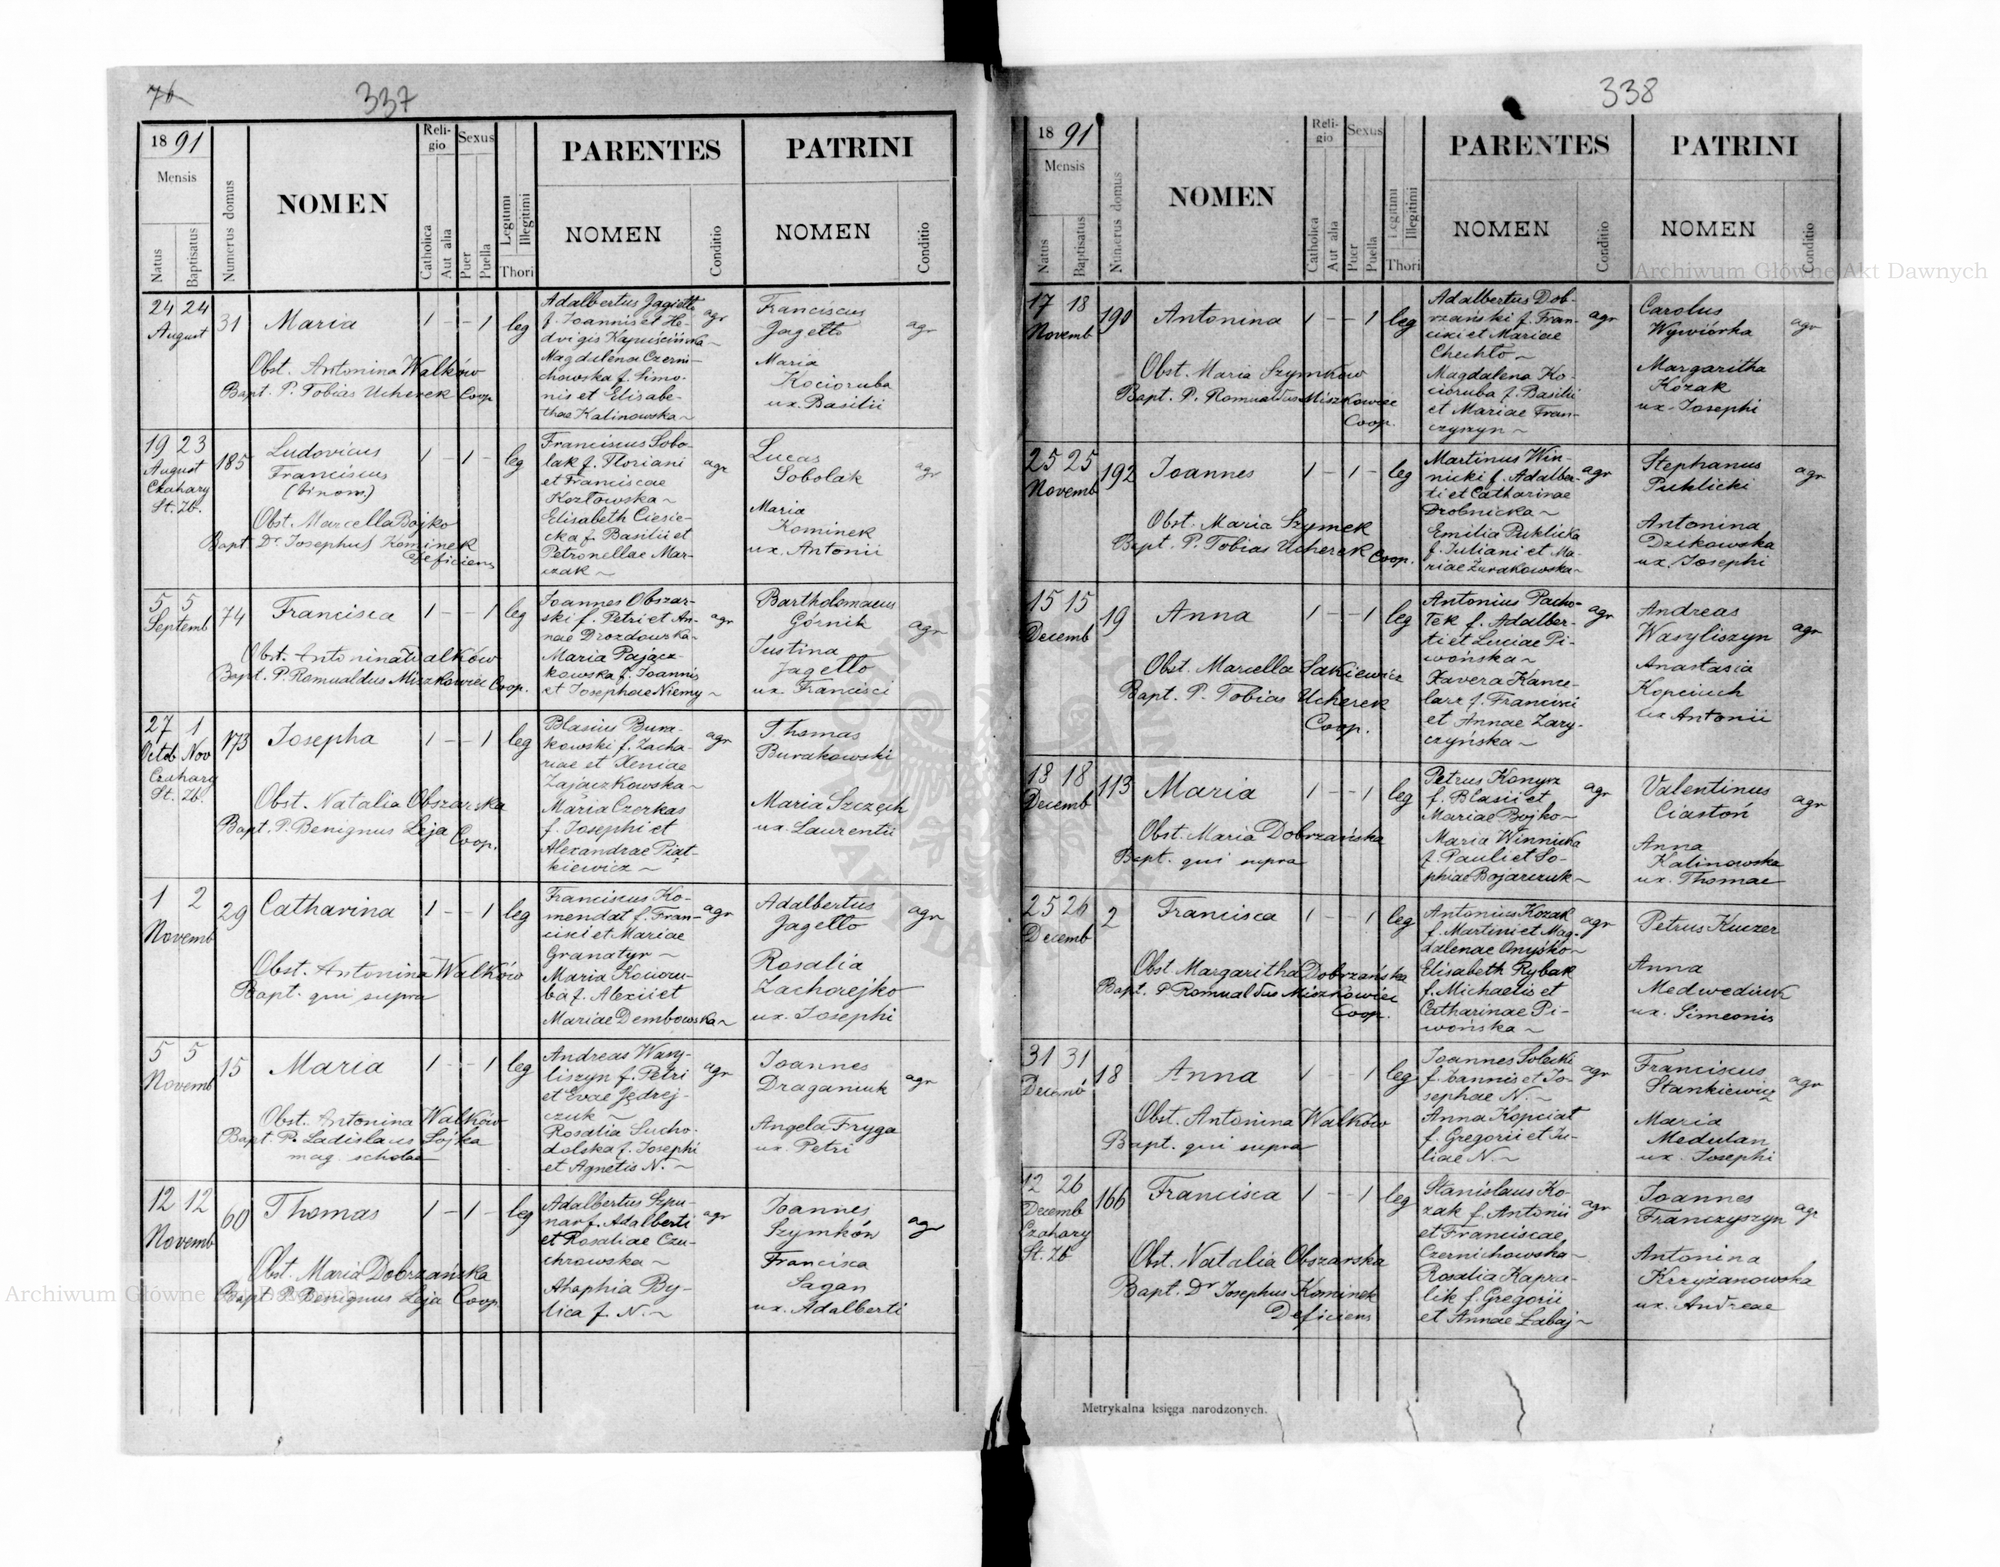 76
337
18 91
Mensis
Natus
Baptisatus
Numerus domus
NOMEN
Reli-
gio
Catholica
Aut alia
Sexus
Puer
Puella
Legitimi
Illegitimi
Thori
PARENTES
NOMEN
Conditio
PATRINI
NOMEN
Conditio
24 24
August
31
Maria
1 - - 1 leg
Obst. Antonina Walków
Bapt. P. Tobias Ucherek Coop
Adalbertus Jagiełło
f. Joannis et He-
dvigis Kapuścińska ~
Magdalena Czerni-
chowska f. Simo-
nis et Elisabe-
thae Kalinowska ~
agr
Franciscus
Jagełło
Maria
Kocioruba
ux. Basilii
agr
19 23
August
Czahary
St. Zb.
185
Ludovicus
Franciscus
(binom.)
1 - 1 - leg
Obst. Marcella Bojko
Bapt. Dr. Josephus Kominek
Deficiens
Franciscus Sobo-
lak f. Floriani
et Franciscae
Kozłowska ~
Elisabeth Ciesie-
cka f. Basilii et
Petronellae Mar-
czak ~
agr
Lucas
Sobolak
Maria
Kominek
ux. Antonii
agr
5 5
Septemb
74
Francisca
1 - - 1 leg
Obst. Antonina Walków
Bapt. P. Romualdus Miszkowiec Coop.
Joannes Obszar-
ski f. Petri et An-
nae Drozdowska ~
Maria Pającz-
kowska f. Joannis
et Josephae Niemy ~
agr
Bartholomaeus
Górnik
Justina
Jagełło
ux. Francisci
agr
27 1
Octob Nov
Czahary
St. Zb.
173
Josepha
1 - - 1 leg
Obst. Natalia Obszarska
Bapt. P. Benignus Leja Coop.
Blasius Bura-
kowski f. Zacha-
riae et Xeniae
Zajaczkowska ~
Maria Czerkas
f. Josephi et
Alexandrae Piąt-
kiewicz ~
agr
Thomas
Burakowski
Maria Szczęch
ux. Laurentii
1 2
Novemb
29
Catharina
1 - - 1 leg
Obst. Antonina Walków
Bapt. qui supra
Franciscus Ko-
mendat f. Fran-
cisci et Mariae
Granatyr ~
Maria Kocioru-
ba f. Alexii et
Mariae Dembowska ~
agr
Adalbertus
Jagełło
Rosalia
Zacharejko
ux. Josephi
agr
5 5
Novemb
15
Maria
1 - - 1 leg
Obst. Antonina Walków
Bapt. P. Ladislaus Sojka
mag. scholae
Andreas Wasy-
liszyn f. Petri
et Evae Jędrej-
czuk ~
Rosalia Sucho-
dolska f. Josephi
et Agnetis N. ~
agr
Joannes
Draganiuk
Angela Fryga
ux. Petri
agr
12 12
Novemb
60
Thomas
1 - 1 - leg
Obst. Maria Dobrzańska
Bapt. P. Benignus Leja Coop.
Adalbertus Szpu-
nar f. Adalberti
et Rosaliae Czu-
chrowska ~
Ahaphia By-
lica f. N. ~
agr
Joannes
Szymków
Francisca
Sagan
ux. Adalberti
agr
338
18 91
Mensis
Natus
Baptisatus
Numerus domus
NOMEN
Reli-
gio
Catholica
Aut alia
Sexus
Puer
Puella
Legitimi
Illegitimi
Thori
PARENTES
NOMEN
Conditio
PATRINI
NOMEN
Conditio
17 18
Novemb
190
Antonina
1 - - 1 leg
Obst. Maria Szymków
Bapt. P. Romualdus Miszkowiec
Coop.
Adalbertus Dob-
rzański f. Fran-
cisci et Mariae
Chechło ~
Magdalena Ko-
cioruba f. Basilii
et Mariae Fran-
czyszyn ~
agr
Carolus
Wywiórka
Margaritha
Kozak
ux. Josephi
agr
25 25
Novemb
192
Joannes
1 - 1 - leg
Obst. Maria Szymek
Bapt. P. Tobias Ucherek Coop.
Martinus Win-
nicki f. Adalber-
ti et Catharinae
Drobnicka ~
Emilia Puklicka
f. Juliani et Ma-
riae Żurakowska ~
agr
Stephanus
Puklicki
Antonina
Dzikowska
ux. Josephi
agr
15 15
Decemb
19
Anna
1 - - 1 leg
Obst. Marcella Sakiewicz
Bapt. P. Tobias Ucherek
Coop.
Antonius Pacho-
łek f. Adalber-
ti et Luciae Pi-
wońska ~
Xavera Kance-
larz f. Francisci
et Annae Zary-
czyńska ~
agr
Andreas
Wasyliszyn
Anastasia
Kopciuch
ux Antonii
agr
18 18
Decemb
113
Maria
1 - - 1 leg
Obst. Maria Dobrzańska
Bapt. qui supra
Petrus Konysz
f. Blasii et
Mariae Bojko ~
Maria Winnicka
f. Pauli et So-
phiae Bojarczuk ~
agr
Valentinus
Ciastoń
Anna
Kalinowska
ux. Thomae
agr
25 26
Decemb
2
Francisca
1 - - 1 leg
Obst Margaritha Dobrzańska
Bapt. P Romualdus Miszkowiec
Coop.
Antonius Kozak
f. Martini et Mag-
dalenae Onyśko ~
Elisabeth Rybak
f. Michaelis et
Catharinae Pi-
wońska ~
agr
Petrus Kuczer
Anna
Medwediuk
ux. Simeonis
31 31
18
Anna
1 - - 1 leg
Obst. Antonina Walków
Bapt. qui supra
Joannes Solecki
f. Joannis et Jo-
sephae N. ~
Anna Kopciat
f. Gregorii et Ju-
liae N. ~
agr
Franciscus
Stankiewicz
Maria
Medulan
ux. Josephi
agr
12 26
Decemb
Czahary
St. Zb
166
Francisca
1 - - 1 leg
Obst. Natalia Obszarska
Bapt. Dr Josephus Kominek
Deficiens
Stanislaus Ko-
zak f. Antonii
et Franciscae
Czernichowska ~
Rosalia Kapra-
lik f. Gregorii
et Annae Łabaj ~
agr
Joannes
Franczyszyn
Antonina
Krzyżanowska
ux. Andreae
agr
Metrykalna księga narodzonych.
Archiwum Główne Akt Dawnych
Archiwum Główne Akt Dawnych